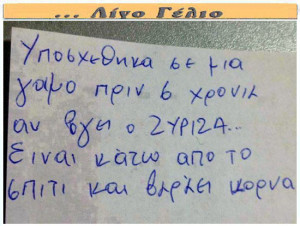 ... Λίγο Γέλιο
Υποσχεθηκα σε μια
γαμο πριν 6 χρονια
αν βγει ο ΣΥΡΙΖΑ...
Ειναι κάτω απο το
σπιτι και βαράει κορνα